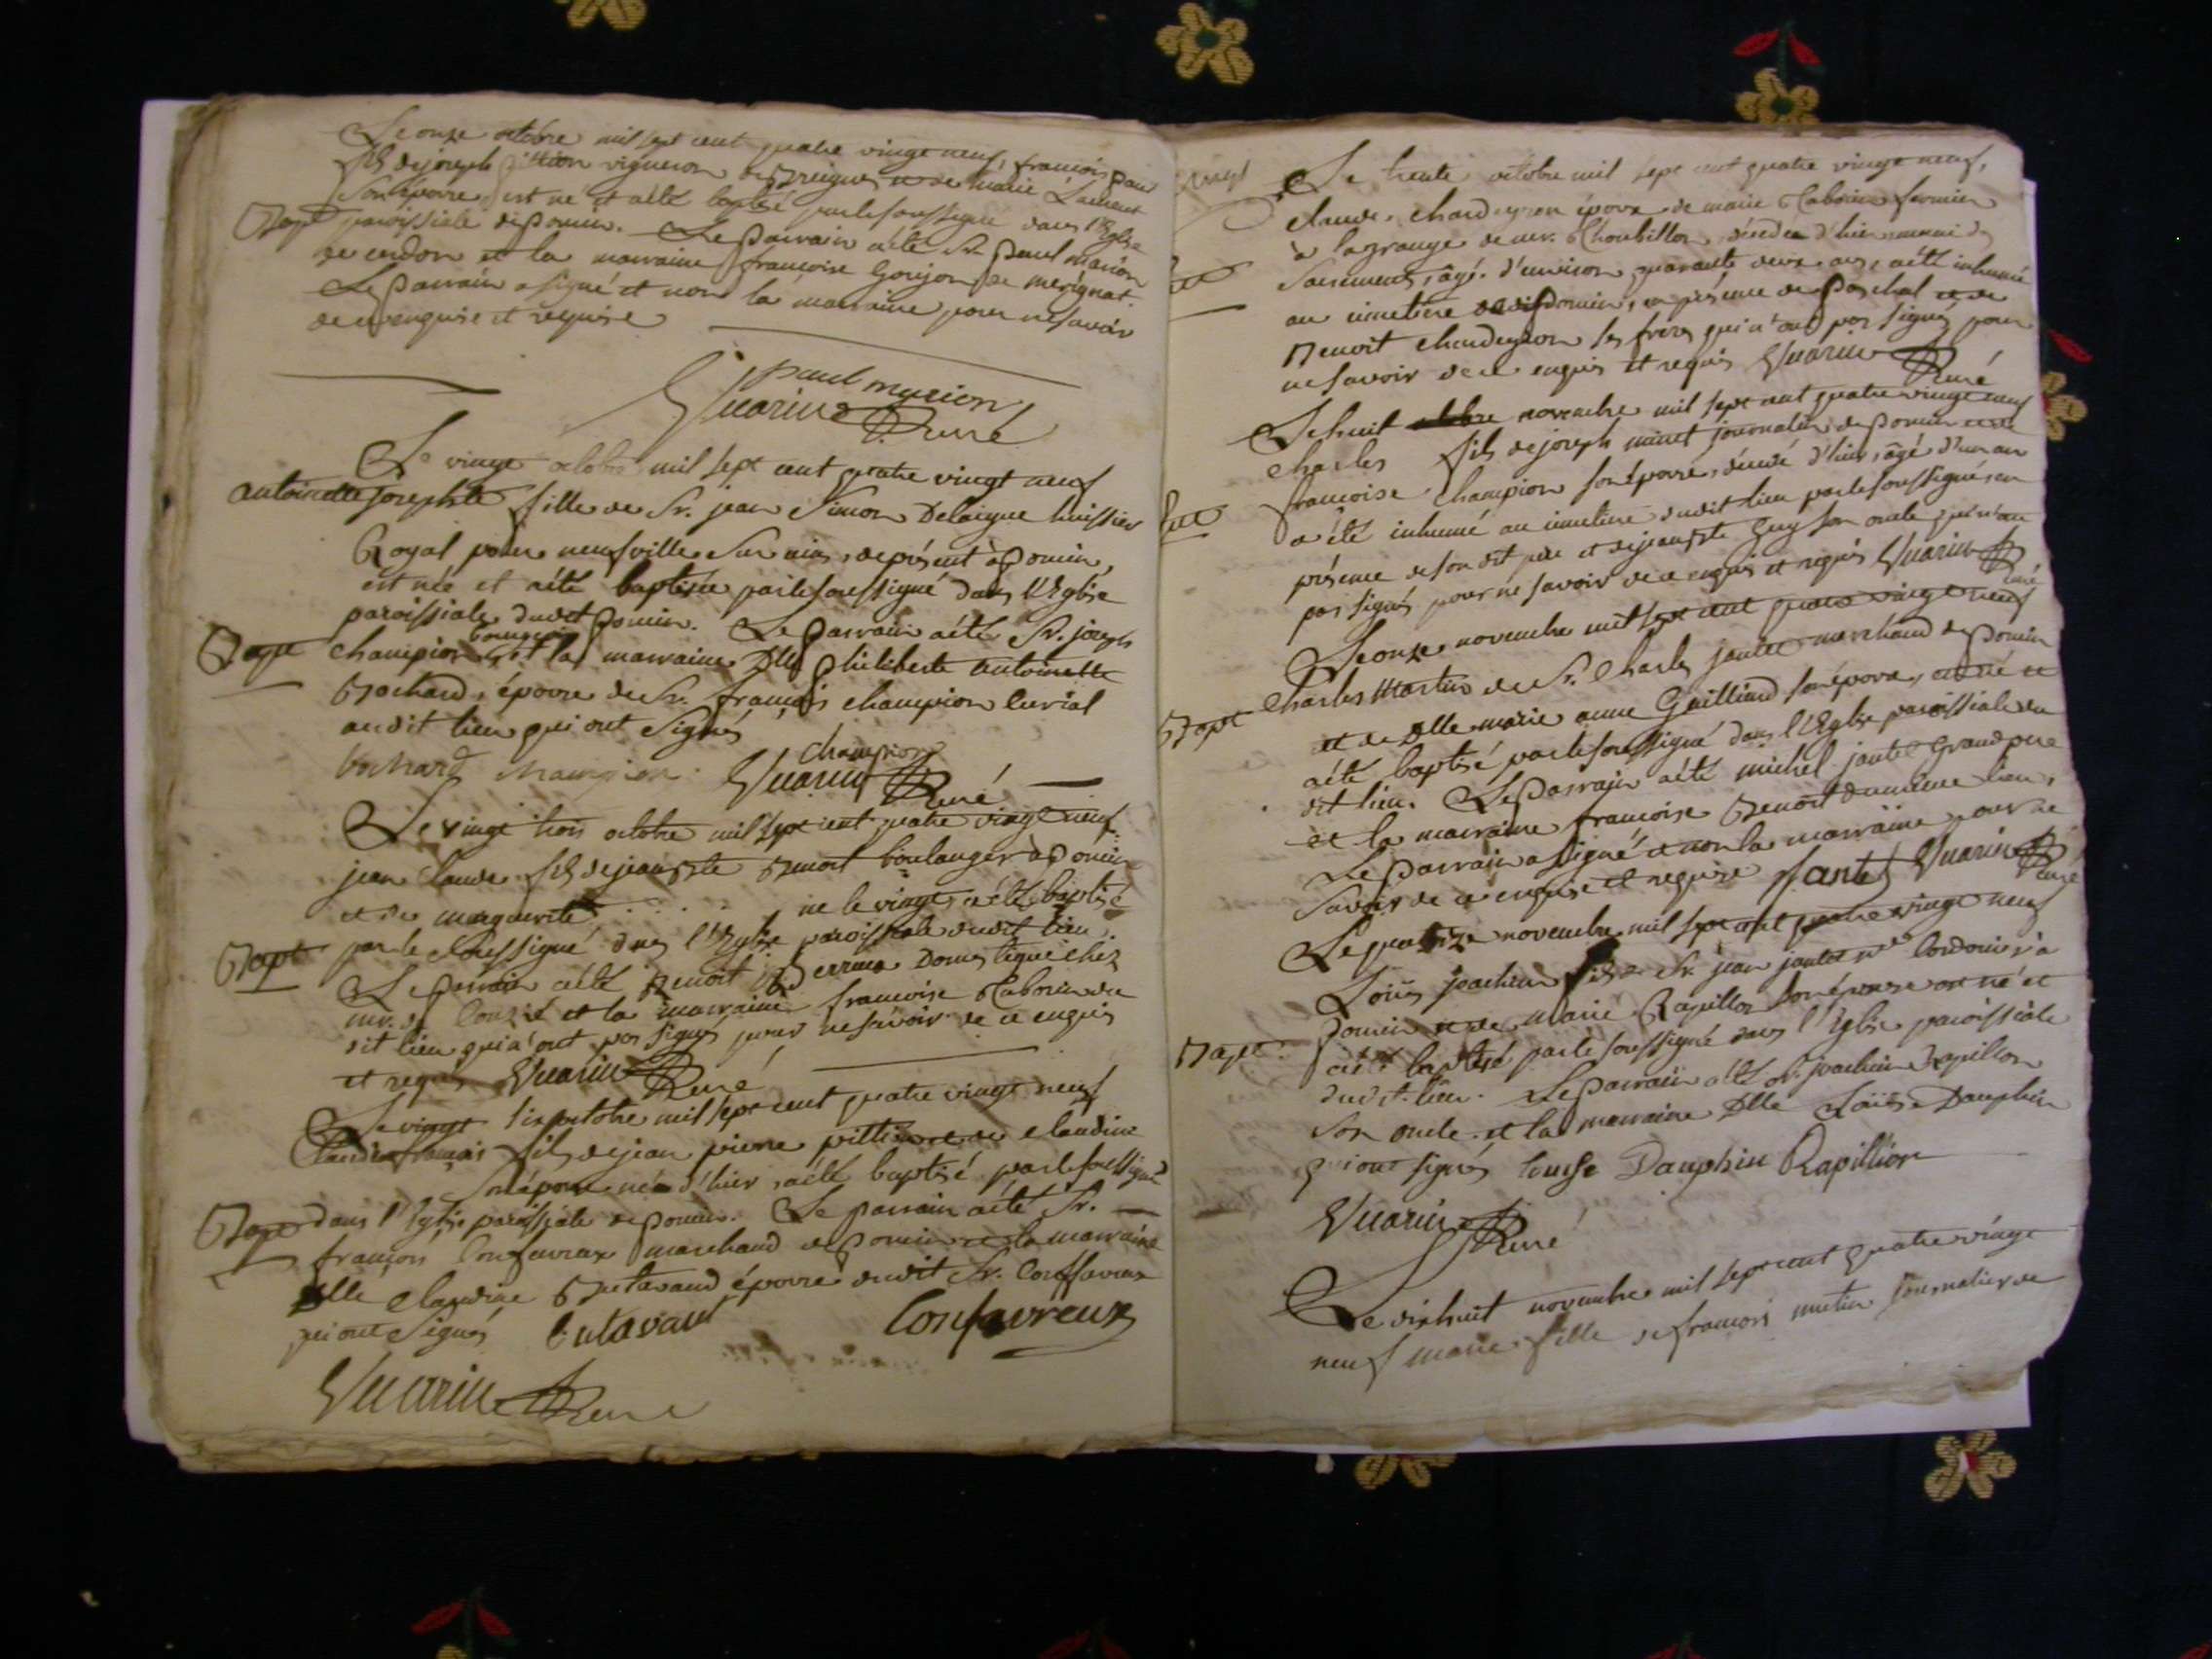 Le onze octobre mil sept cent quatre vingt neuf, françois paul
fils de joseph vigneron de Breignes et de marie Laurent
Son épouse, est né et a été baptisé par le soussigné dans l'Eglise
Bapt paroissiale de poncin. Le parrain a été Sr. paul marion
de cerdon et la marraine françoise Goujon de merignat.
Le parrain a signé et non la marraine pour ne savoir
de ce enquise et requise
paul marion
Vuarin Curé
Le vingt octobre mil sept cent quatre vingt neuf
antoinette josephte fille de Sr. jean Simon Delaigue huissier
Royal pour neufville Sur ains, de présent à poncin,
est née et a été baptisée par le soussigné dans l'Eglise
paroissiale dudit poncin. Le parrain a été Sr. joseph
Bapt champion bourgeois et la marraine Dlle philiberte antoinette
Bochard, épouse de Sr. françois champion curial
audit lieu qui ont Signés
bochard champion champion
Vuarin Curé
Le vingt trois octobre mil sept cent quatre vingt neuf
jean claude fils de jean Bte Benoit boulanger à poncin
et de marguerite . . . . . ne le vingt, a été baptisé
Bapt par le soussigné dans l'Eglise paroissiale dudit lieu.
Le parrain a été Benoit Domestique chez
mr. de et la marraine françoise Taborin du
dit lieu qui n'ont pas signés pour ne savoir de ce enquis
et requis Vuarin Curé
Le vingt six octobre mil sept cent quatre vingt neuf
Claude françois fils de jean pierre et de claudine
son épouse né d'hier, a été baptisé par le soussigné
Bapt dans l'Eglise paroissiale de poncin. Le parrain a été Sr.
françois Confavreux marchand de poncin et la marraine
Dlle claudine Butavand épouse dudit Sr. Confavreux
qui ont Signés Butavant Confavreux
Vuarin Curé
Le trente octobre mil sept cent quatre vingt neuf,
claude chardeyron époux de marie Taborin fermier
à la grange de mr. décédé d'hier muni des
Sacrements, âgé d'environ quarante deux ans, a été inhumé
au cimetière dudit poncin, en présence de paschal et de
Benoit chardeyron ses frères qui n'ont pas signés pour
ne savoir de ce enquis et requis Vuarin Curé
Le huit novembre mil sept cent quatre vingt neuf
charles fils de joseph minet journalier de poncin et de
françoise champion son épouse, décédé d'hier, âgé d'un an
a été inhumé au cimetière dudit lieu par le soussigné, en
présence de son dit père et de jean Bte Guy son oncle qui n'ont
pas signés pour ne savoir de ce enquis et requis Vuarin Curé
Le onze novembre mil sept cent quatre vingt neuf
Charles Martin de Sr. Charles jantet marchand de poncin
Bapt et de Dlle marie anne Guilliand son épouse, est né et
a été baptisé par le soussigné dans l'Eglise paroissiale du
dit lieu. Le parrain a été michel jantet Grand pere
et la marraine françoise Benoit du même lieu,
Le parrain a signé et non la marraine pour ne
Savoir de ce enquise et requise jantet Vuarin Curé
Le quatorze novembre mil sept cent quatre vingt neuf
Loüis joachim fils de Sr. jean jantet Cordonier à
poncin et de Marie Rapillon son épouse est né et
Bapt. a été baptisé par le soussigné dans l'Eglise paroissiale
dudit lieu. Le parrain a été Sr. joachim Rapillon
Son oncle et la marraine Dlle Loüise Dauphin
qui ont signés Louise Dauphin Rapillion
Vuarin Curé
Le dix huit novembre mil sept cent quatre vingt
neuf marie fille de françois mutin journalier de